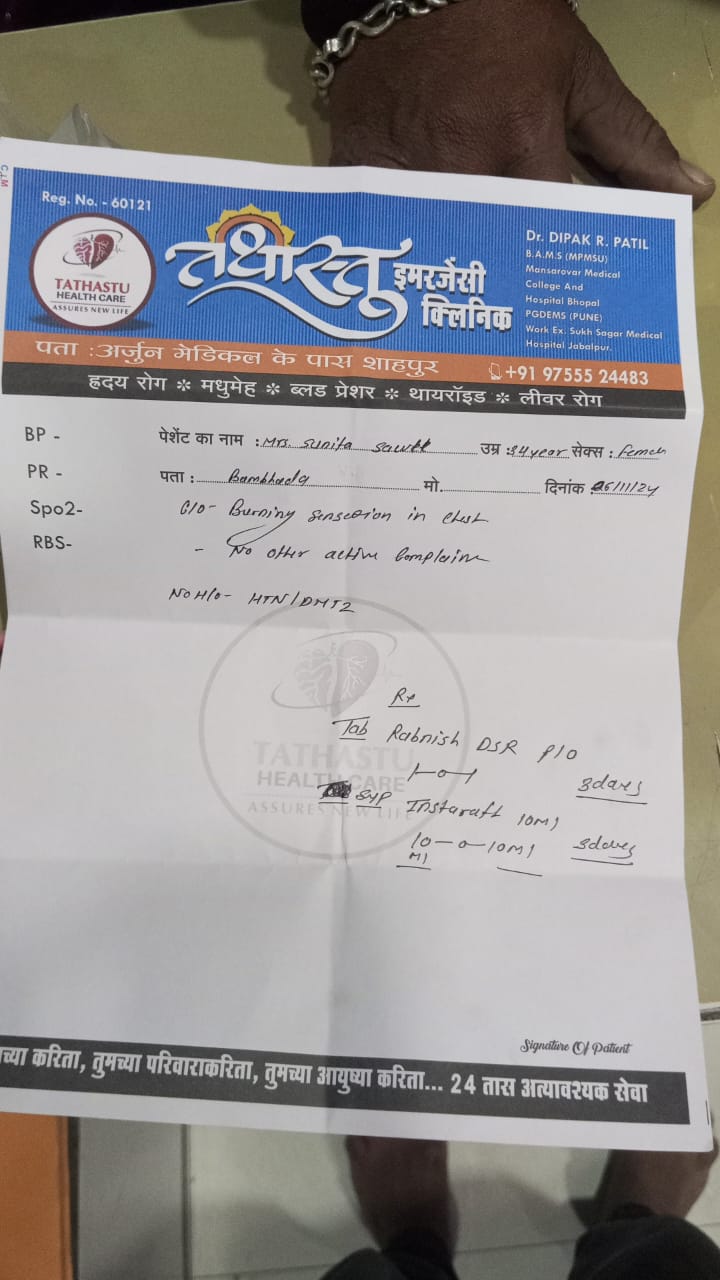 Reg. No. - 60121
TATHASTU
HEALTH CARE
ASSURES NEW LIFE
तथास्तु
इमरजेंसी
क्लिनिक
Dr. DIPAK R. PATIL
B.A.M.S (MPMSU)
Mansarovar Medical
College And
Hospital Bhopal
PGDEMS (PUNE)
Work Ex. Sukh Sagar Medical
Hospital Jabalpur.
पता :अर्जुन मेडिकल के पास शाहपुर
+91 97555 24483
ह्रदय रोग * मधुमेह * ब्लड प्रेशर * थायरॉइड * लीवर रोग
BP -
पेशेंट का नाम : Mrs. Sunita उम्र : 34 year सेक्स :
PR -
पता : Bambhada मो. दिनांक : 25/11/24
Spo2-
C/O - Burning sensection in chest
RBS-
- No other active Complaine
NO H/O - HTN/DMT2
TATHASTU
HEALTH CARE
ASSURES NEW LIFE
Rx
Tab Rabnish DSR P/O
1-0-1 3days
Syp Instaraft 10Ml
10-0-10Ml 3days
Ml
Signature Of Patient
करिता, तुमच्या परिवाराकरिता, तुमच्या आयुष्या करिता... 24 तास अत्यावश्यक सेवा